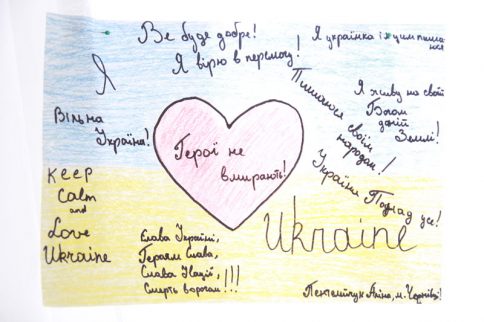 Все буде добре!
Я вірю в перемогу!
Я українка і цим пишаюся
Я
Вільна
Україна!
Пишаюся своїм
народом!
Я живу на своїй
Богом
даній
Землі!
Україна Понад усе!
Герої не
вмирають!
Keep
Calm
and
Love
Ukraine
Слава Україні,
Героям Слава,
Слава Нації,
Смерть ворогам!!!
Ukraine
Аліна, м. Чернівці!